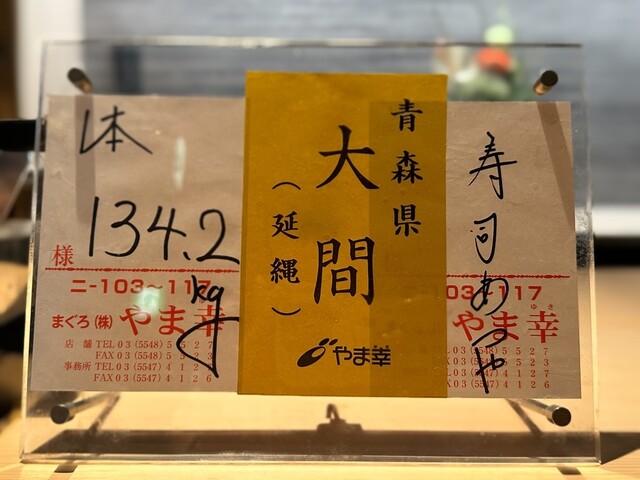 本
134.2
kg
様
ニ-103～117
まぐろ(株)やま幸
店舗 TEL 03 (5548) 5527
FAX 03 (5548) 5523
事務所 TEL 03 (5547) 4127
FAX 03 (5547) 4126
青森県
大間
(延縄)
やま幸
寿司あつや
03～117
ゆき
やま幸
03 (5548) 5527
03 (5548) 5523
03 (5547) 4127
03 (5547) 4126